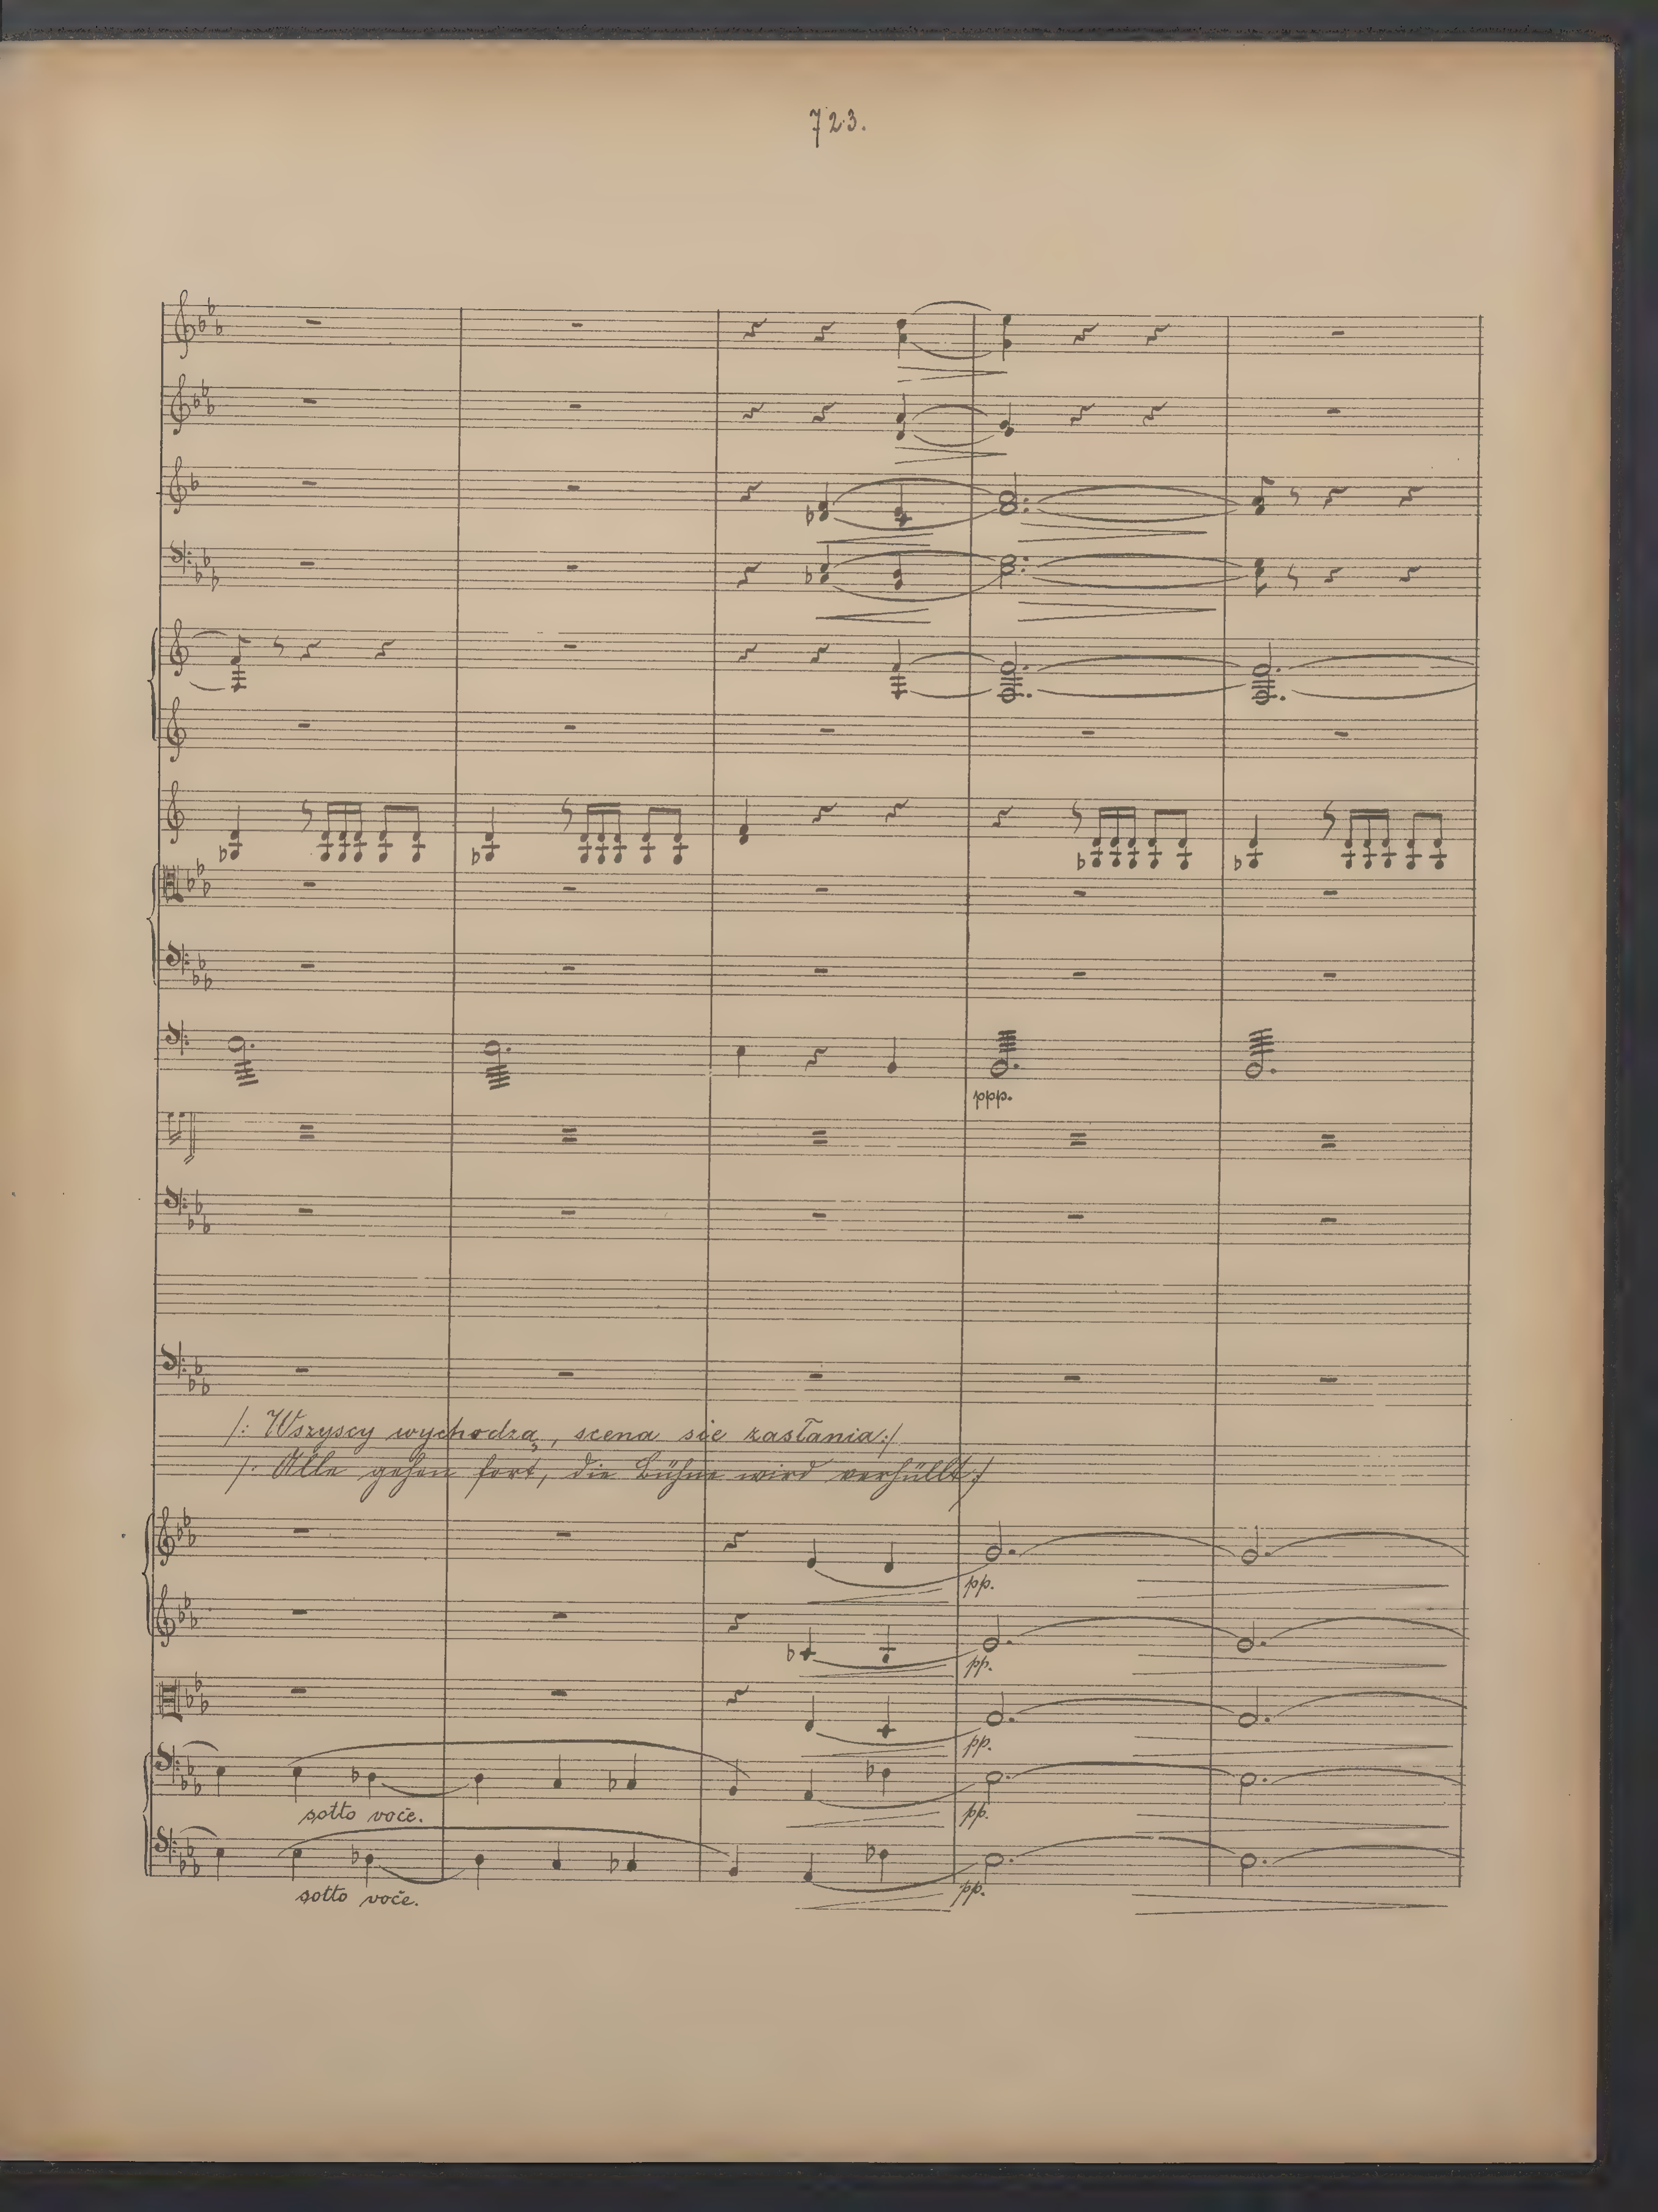 723.
ppp.
/: Wszyscy wychodzą, scena sie zasłania:/
/: Alle gehen fort, die Bühne wird verhüllt:/
pp.
pp.
pp.
sotto voče. pp.
sotto voče. pp.